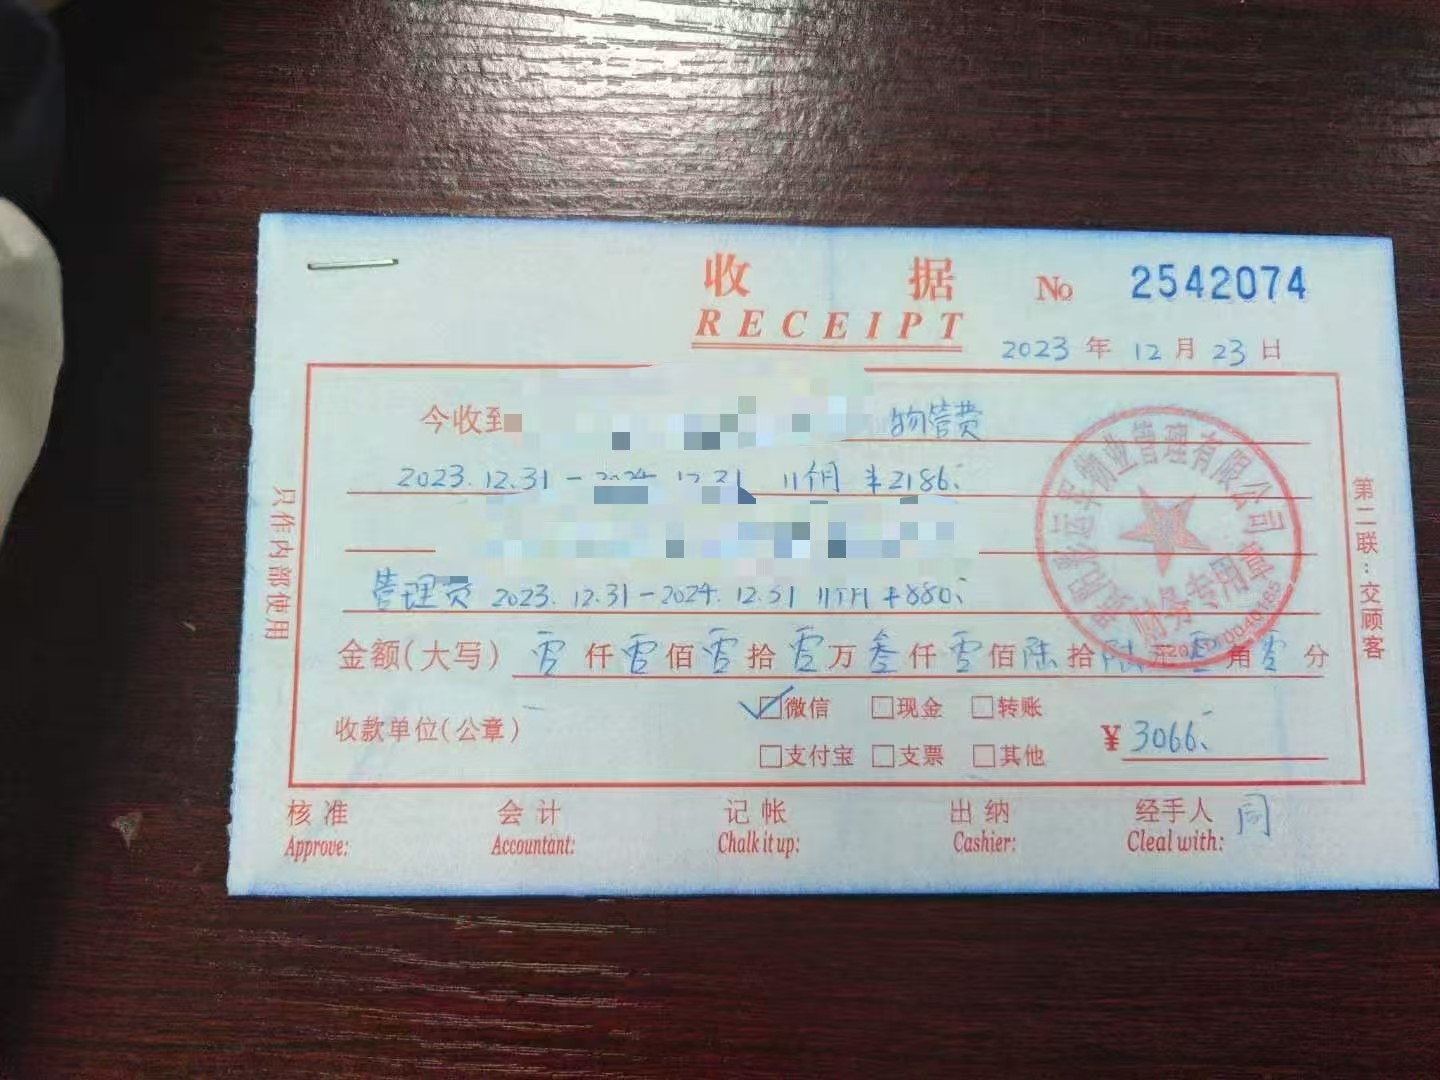 收据 No 2542074
RECEIPT
2023年12月23日
今收到 物管费
2023.12.31-2024.12.31 11个月 ¥2186.
管理费 2023.12.31-2024.12.31 11个月 ¥880.
金额(大写) 零仟零佰零拾零万叁仟零佰陆拾陆元零角零分
收款单位(公章) ☑微信 □现金 □转账 ¥3066.
□支付宝 □支票 □其他
核准 会计 记帐 出纳 经手人
Approve: Accountant: Chalk it up: Cashier: Cleal with:
只作内部使用
第二联:交顾客
运军物业管理有限公司
财务专用章